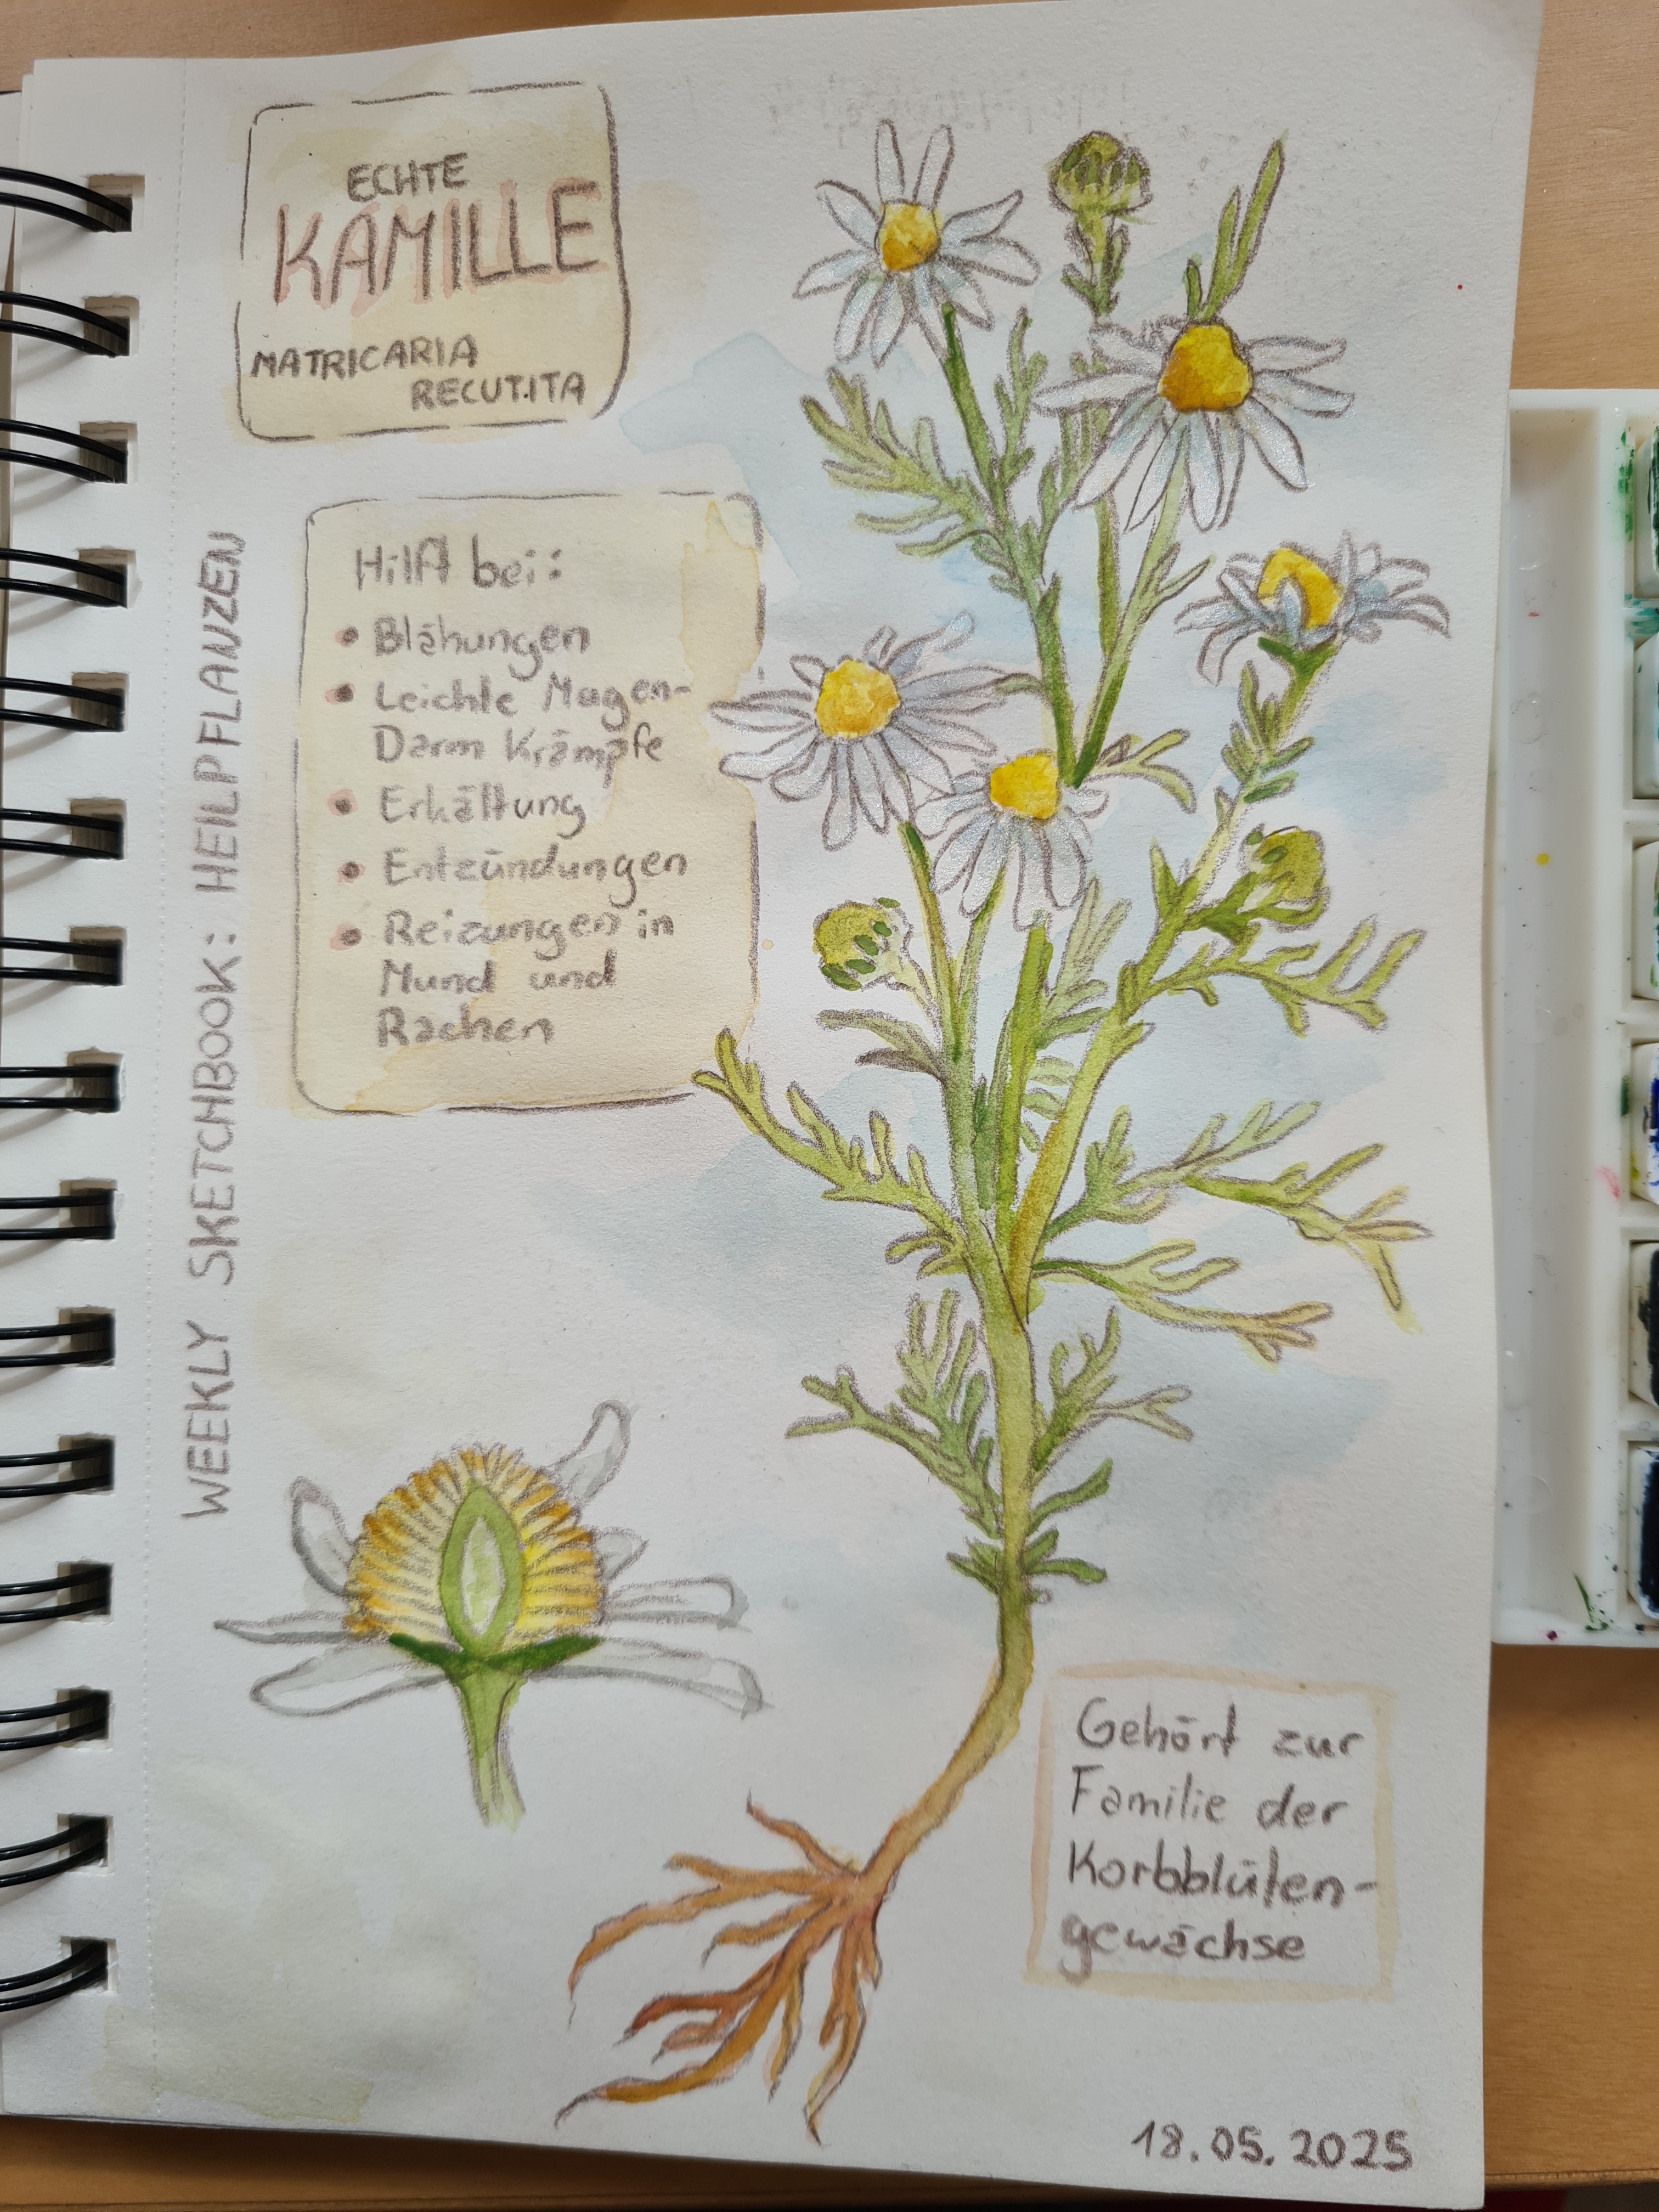 ECHTE
KAMILLE
MATRICARIA
RECUTITA
WEEKLY SKETCHBOOK: HEILPFLANZEN
Hilft bei:
• Blähungen
• Leichte Magen-
Darm Krämpfe
• Erkältung
• Entzündungen
• Reizungen in
Mund und
Rachen
Gehört zur
Familie der
Korbblüten-
gewächse
18.05.2025